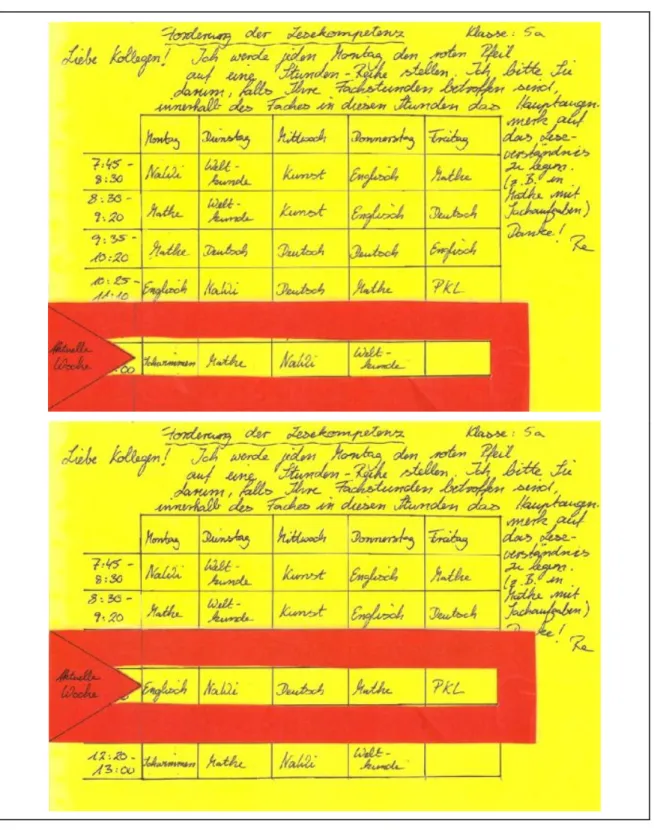 Förderung der Lesekompetenz Klasse: 5a
Liebe Kollegen! Ich werde jeden Montag den roten Pfeil
auf eine Stunden-Reihe stellen. Ich bitte Sie
darum, falls Ihre Fachstunden betroffen sind,
innerhalb des Faches in diesen Stunden das Hauptaugen-
merk auf
das Lese-
verständnis
zu legen.
(z.B. in
Mathe mit
Sachaufgaben)
Danke!
Re
Montag Dienstag Mittwoch Donnerstag Freitag
7:45 - 8:30 NaWi Welt-kunde Kunst Englisch Mathe
8:30 - 9:20 Mathe Welt-kunde Kunst Englisch Deutsch
9:35 - 10:20 Mathe Deutsch Deutsch Deutsch Englisch
10:25 - 11:10 Englisch NaWi Deutsch Mathe PKL
Aktuelle Woche :00 Schwimmen Mathe NaWi Welt-kunde
Förderung der Lesekompetenz Klasse: 5a
Liebe Kollegen! Ich werde jeden Montag den roten Pfeil
auf eine Stunden-Reihe stellen. Ich bitte Sie
darum, falls Ihre Fachstunden betroffen sind,
innerhalb des Faches in diesen Stunden das Hauptaugen-
merk auf
das Lese-
verständnis
zu legen.
(z.B. in
Mathe mit
Sachaufgaben)
Danke!
Re
Montag Dienstag Mittwoch Donnerstag Freitag
7:45 - 8:30 NaWi Welt-kunde Kunst Englisch Mathe
8:30 - 9:20 Mathe Welt-kunde Kunst Englisch Deutsch
Aktuelle Woche Englisch NaWi Deutsch Mathe PKL
12:20 - 13:00 Schwimmen Mathe NaWi Welt-kunde